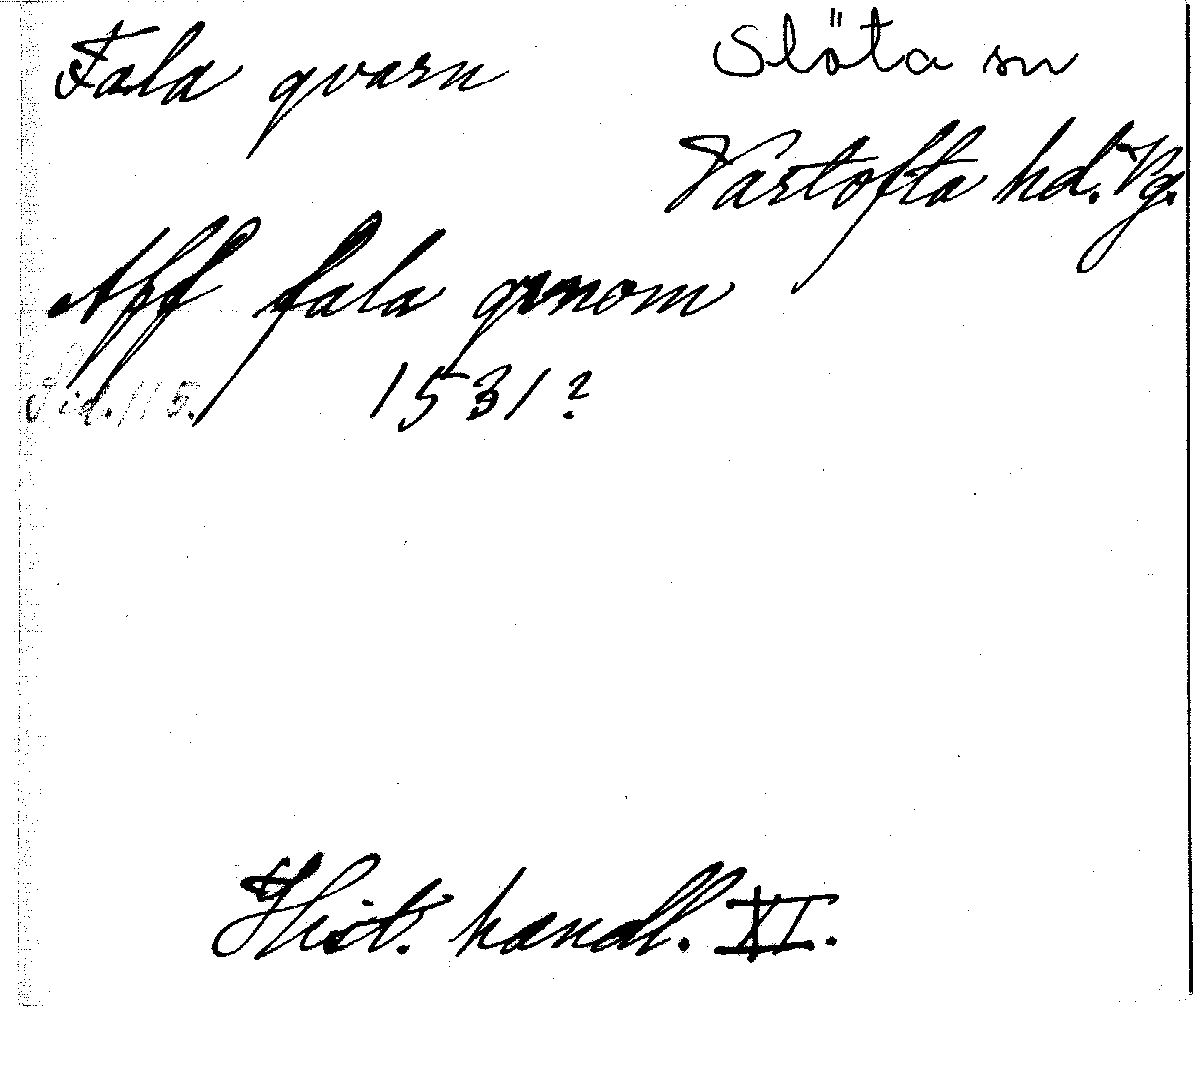 Fala qvarn
Slöta sn
Vartofta hd. Vg.
Aff fala qvrnom
Sid. 115. 1531?
Hist. handl. XI.